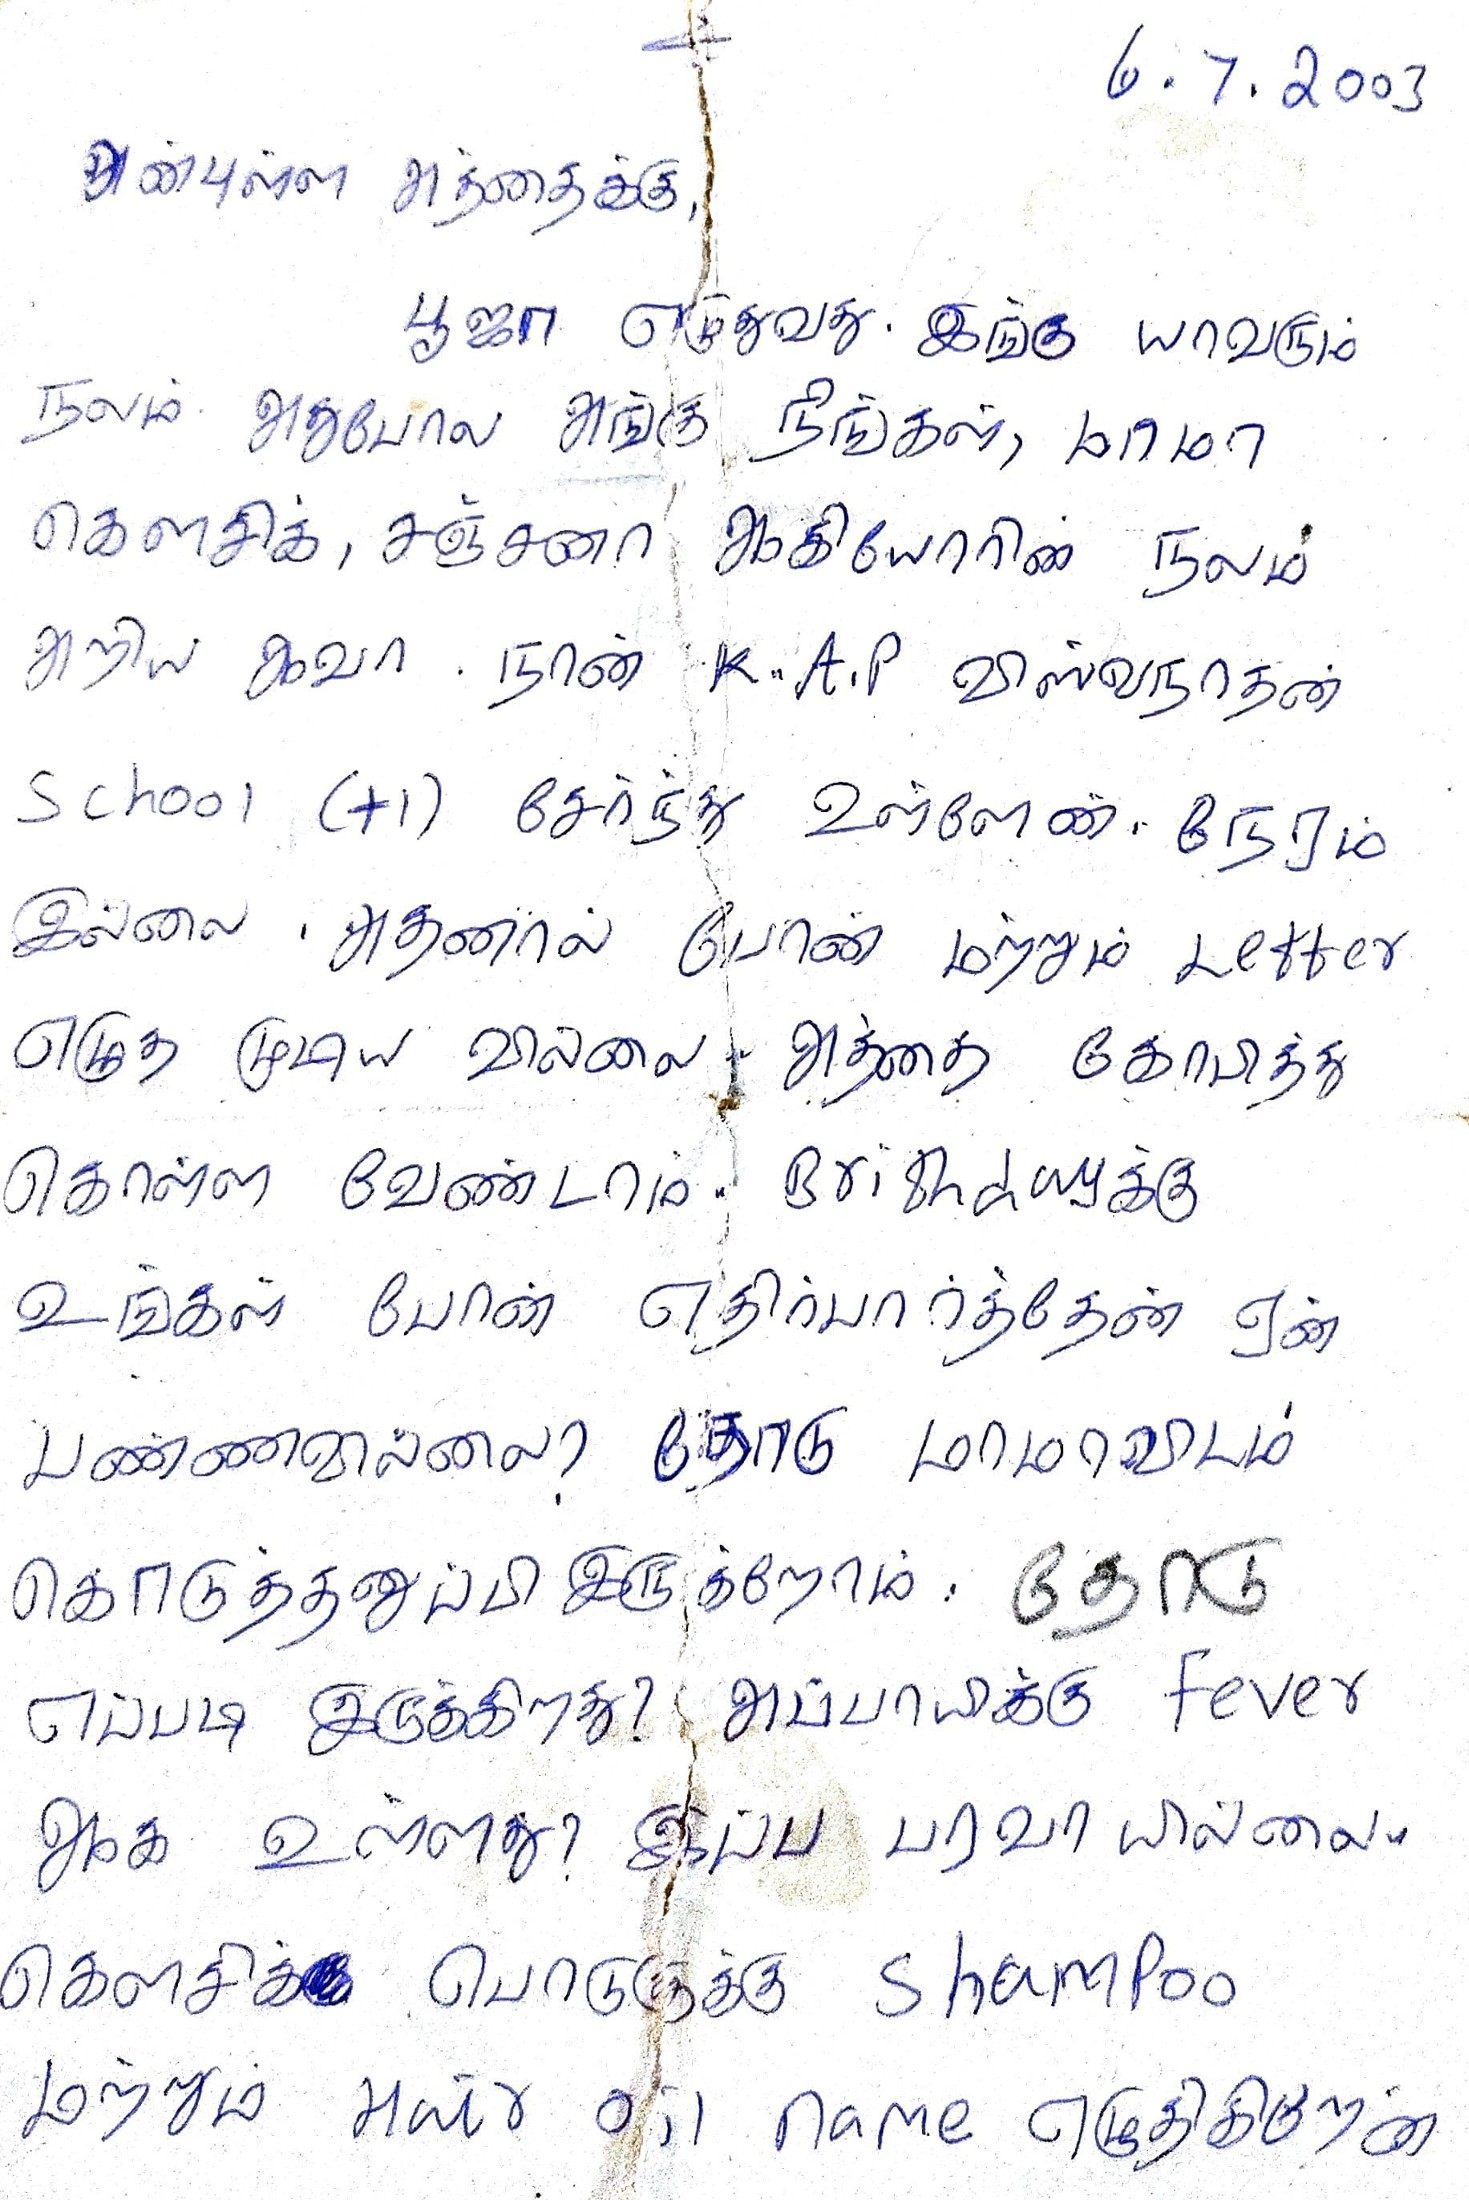 6.7.2003
அன்புள்ள அத்தைக்கு,
பூஜா எழுதுவது. இங்கு யாவரும்
நலம். அதுபோல அங்கு நீங்கள், மாமா
கௌசிக், சஞ்சனா ஆகியோரின் நலம்
அறிய ஆவா. நான் K.A.P விஸ்வநாதன்
School (+1) சேர்ந்து உள்ளேன். நேரம்
இல்லை. அதனால் போன் மற்றும் Letter
எழுத முடிய வில்லை. அத்தை கோபித்து
கொள்ள வேண்டாம். Brithdayக்கு
உங்கள் போன் எதிர்பார்த்தேன் ஏன்
பண்ணவில்லை? தோடு மாமாவிடம்
கொடுத்தனுப்பி இருக்றோம். தோடு
எப்படி இருக்கிறது? அப்பாயிக்கு Fever
ஆக உள்ளது? இப்ப பரவாயில்லை.
கௌசிக் பொடுகுக்கு Shampoo
மற்றும் Hair oil name எழுதிகிறேன்